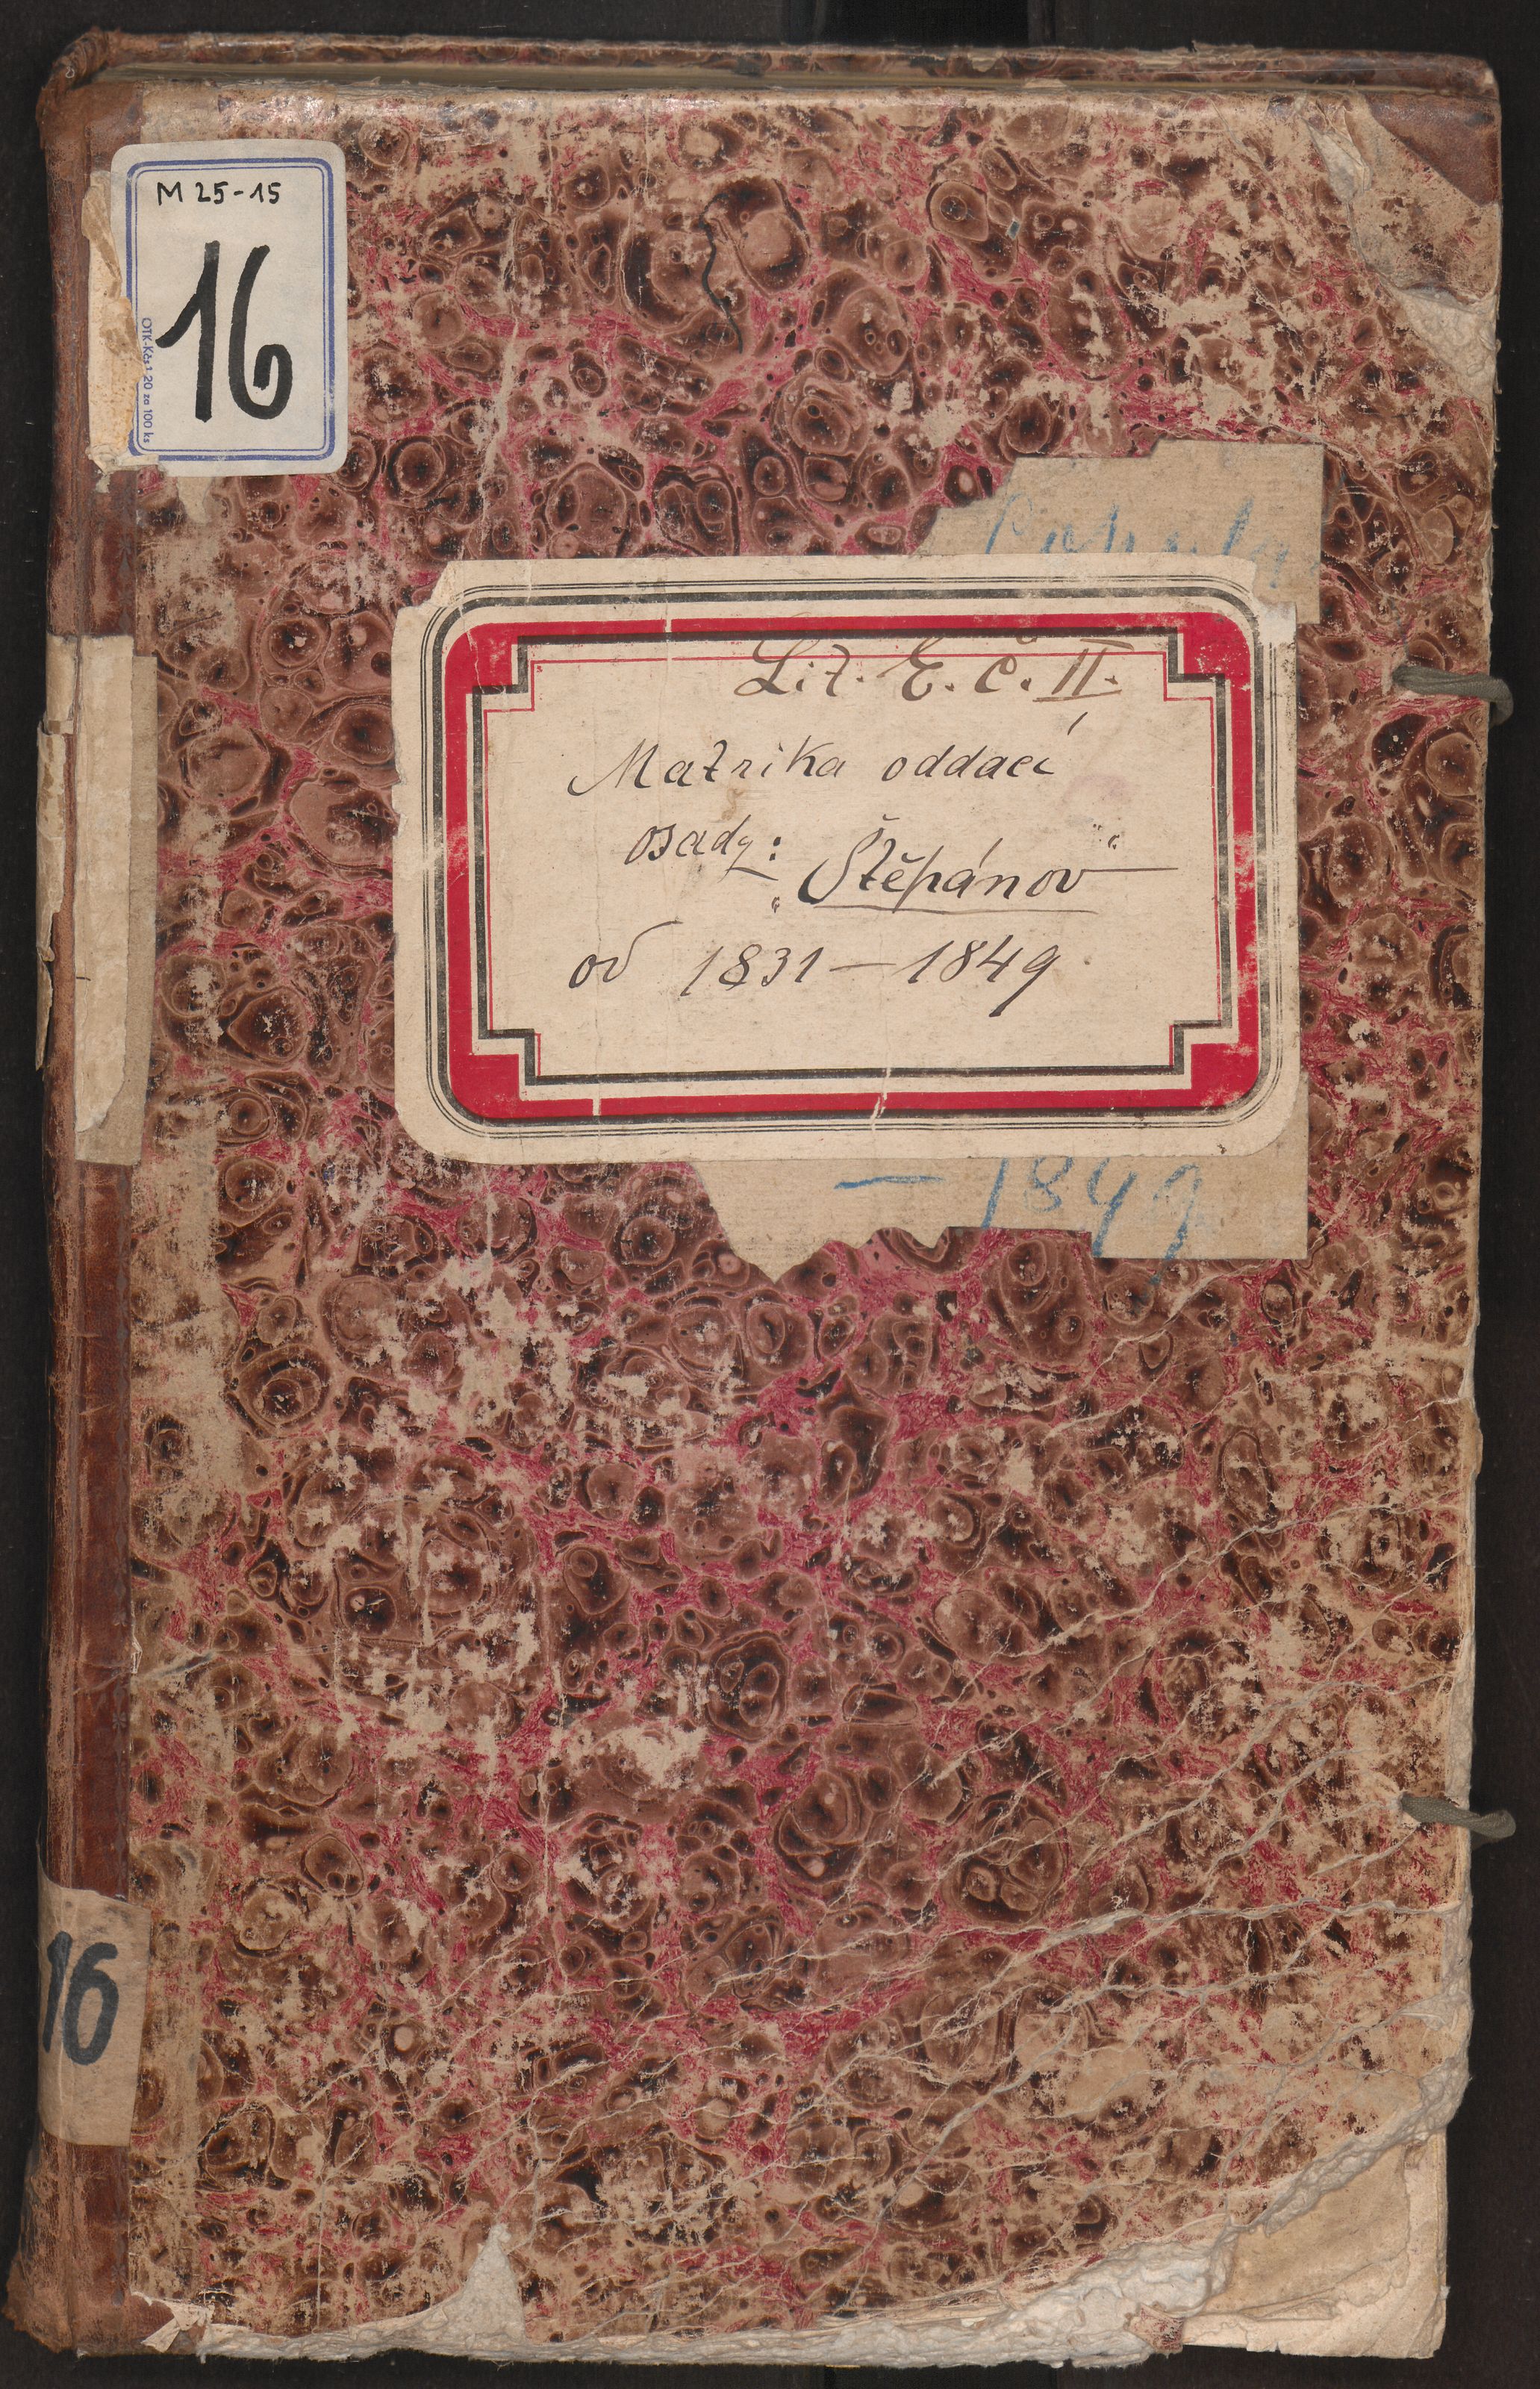 M 25-15
16
OTK-Kčs 1 20 za 100 ks
Lit. E. č. II.
Matrika oddací
osady:
„Štěpánov“
od 1831 – 1849.
– 1849
16